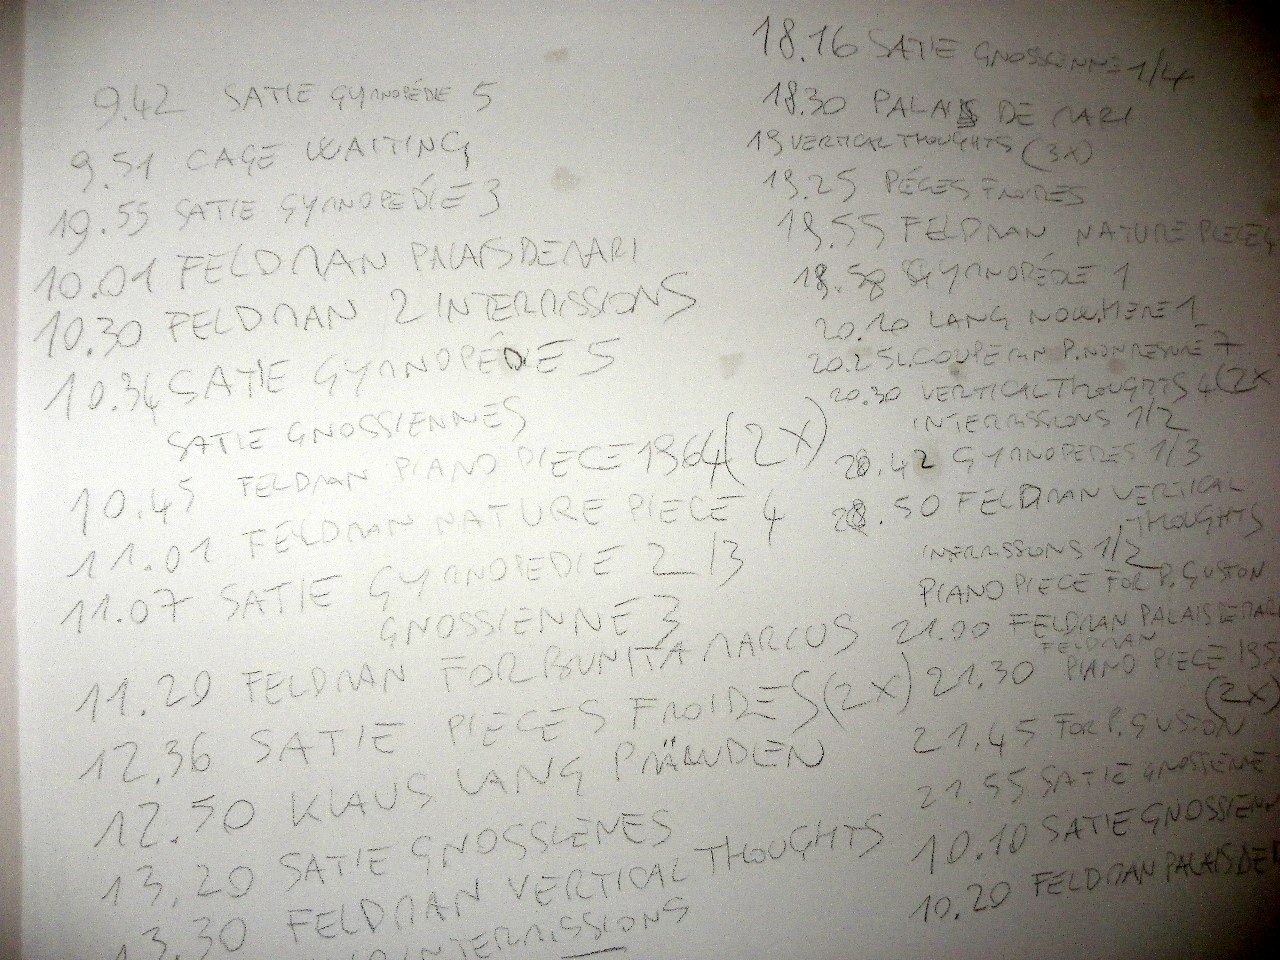 9.42 SATIE GYMNOPÉDIE 5
9.51 CAGE WAITING
19.55 SATIE GYMNOPEDÍE 3
10.01 FELDMAN PALAIS DE MARI
10.30 FELDMAN 2 INTERMISSIONS
10.34 SATIE GYMNOPÉDIE 5
SATIE GNOSSIENNES
10.45 FELDMAN PIANO PIECE 1964 (2X)
11.01 FELDMAN NATURE PIECE 4
11.07 SATIE GYMNOPEDIE 2/3
GNOSSIENNE 3
11.20 FELDMAN FOR BUNITA MARCUS
12.36 SATIE PIECES FROIDES (2X)
12.50 KLAUS LANG
13.20 SATIE GNOSSIENES
13.30 FELDMAN VERTICAL THOUGHTS
INTERMISSIONS
18.16 SATIE GNOSSIENNE 1/4
18.30 PALAIS DE MARI
19 VERTICAL THOUGHTS (3X)
19.25 PÉCES FROIDES
19.55 FELDMAN NATURE PIECE
19.58 GYMNOPÉDIE 1
20.20 LANG NOWHERE 1
20.25 L.COUPERIN P. NON MESURÉ 7
20.30 VERTICAL THOUGHTS 4 (2X
INTERMISSIONS 1/2
20.42 GYMNOPEDIES 1/3
20.50 FELDMAN VERTICAL
THOUGHTS
INTERMISSIONS 1/2
PIANO PIECE FOR P. GUSTON
21.00 FELDMAN PALAIS DE MAR
FELDMAN
21.30 PIANO PIECE 195
(2X)
21.45 FOR P. GUSTON
21.55 SATIE GNOSSIENE
10.10 SATIE GNOSSIENN
10.20 FELDMAN PALAIS DE